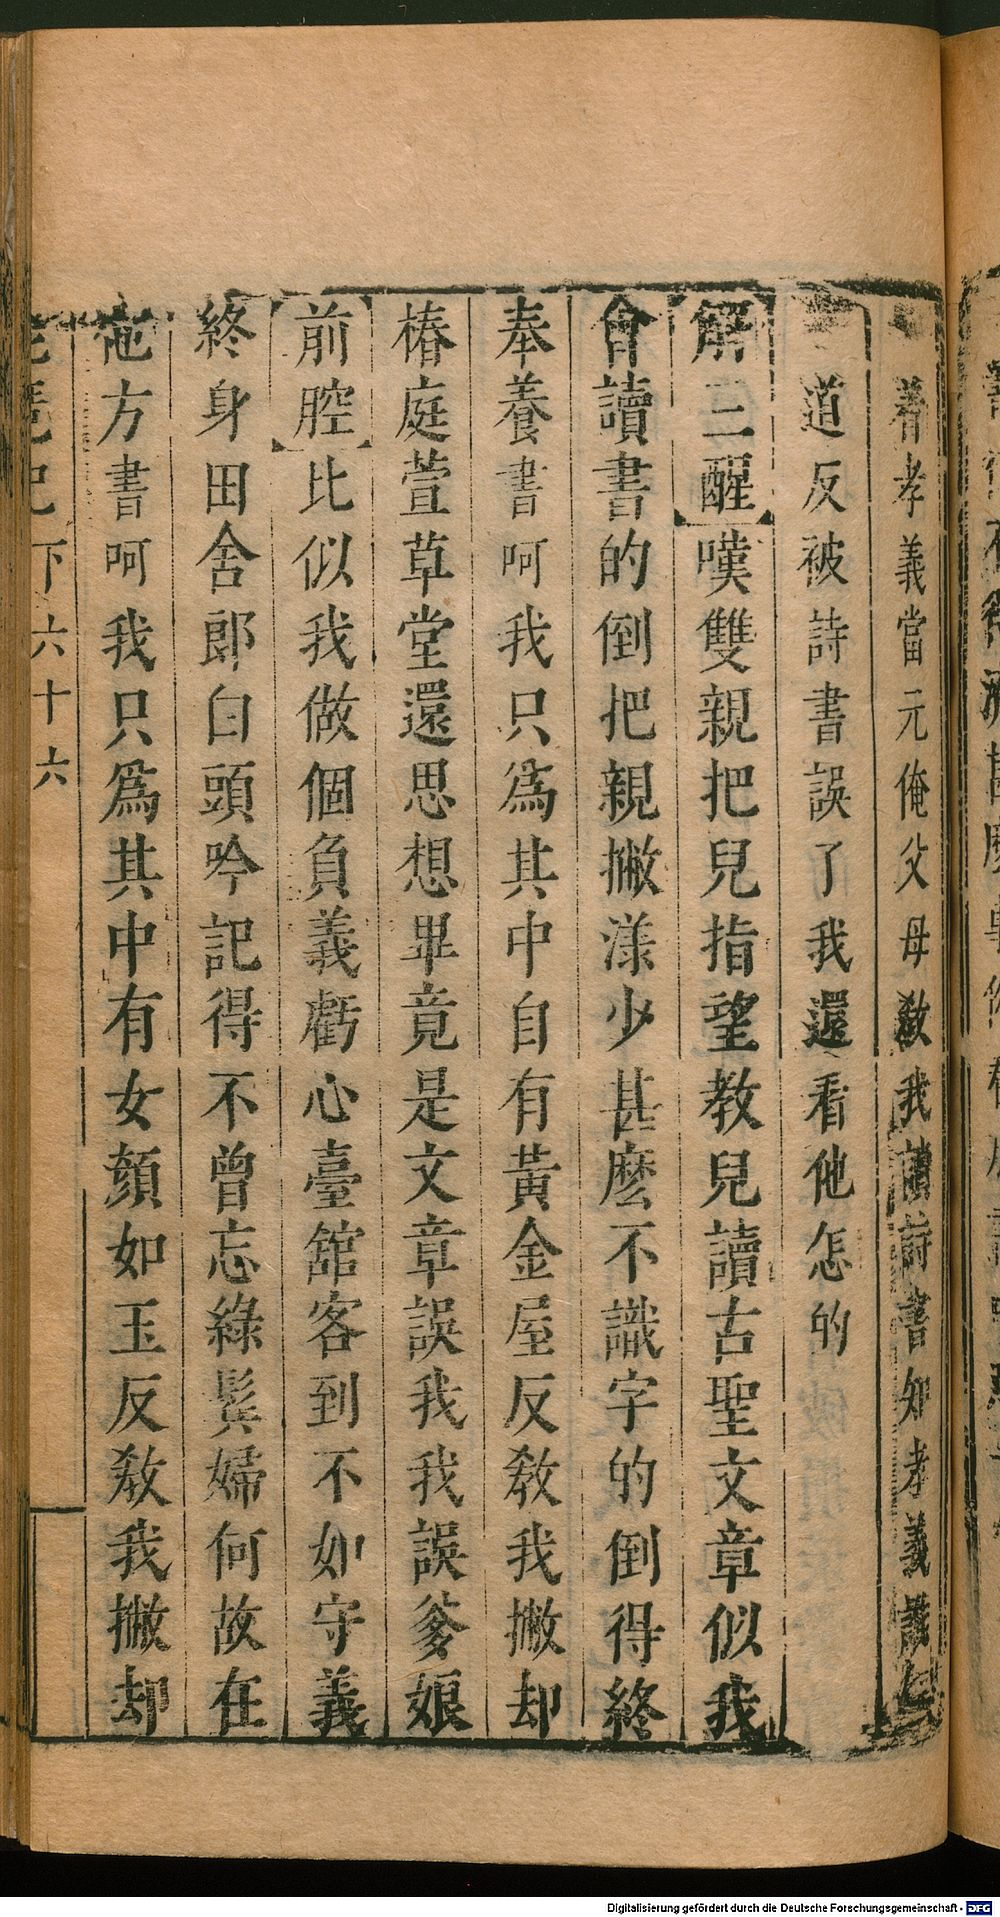 着孝義當元俺父母敎我讀詩書知孝義誰知
道反被詩書誤了我還看他怎的
解三醒嘆雙親把兒指望教兒讀古聖文章似我
會讀書的倒把親撇漾少甚麽不識字的倒得終
奉養書呵我只爲其中自有黃金屋反敎我撇却
椿庭萱草堂還思想畢竟是文章誤我我誤爹娘
前腔比似我做個負義虧心臺舘客到不如守義
終身田舍郎白頭吟記得不曾忘綠鬂婦何故在
他方書呵我只爲其中有女顏如玉反敎我撇却
琵琶記下六十六
Digitalisierung gefördert durch die Deutsche Forschungsgemeinschaft - DFG